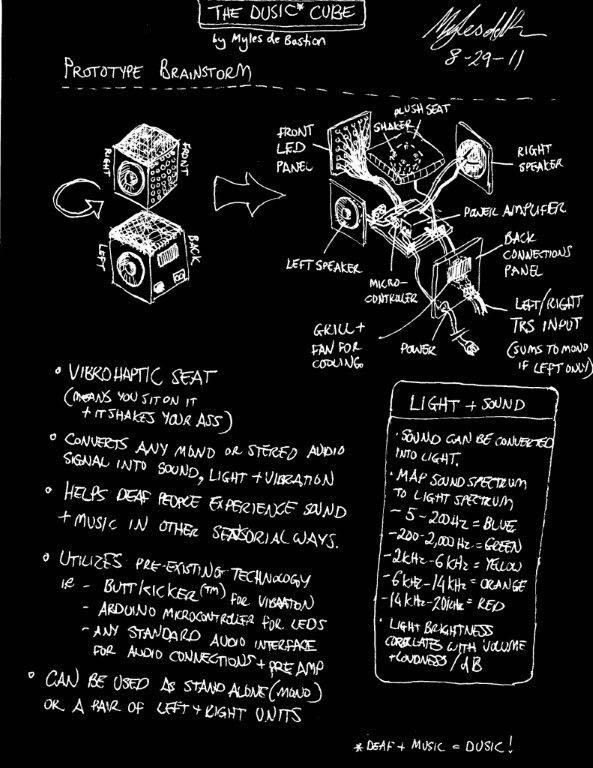 THE DUSIC* CUBE
by Myles de Bastion
8-29-11
PROTOTYPE BRAINSTORM
FRONT
RIGHT
BACK
LEFT
FRONT
LED
PANEL
SHAKER
PLUSH SEAT
RIGHT
SPEAKER
LEFT SPEAKER
MICRO-
CONTROLLER
POWER AMPLIFIER
BACK
CONNECTIONS
PANEL
GRILL +
FAN FOR
COOLING
POWER
LEFT/RIGHT
TRS INPUT
(SUMS TO MONO
IF LEFT ONLY)
• VIBROHAPTIC SEAT
(MEANS YOU SIT ON IT
+ IT SHAKES YOUR ASS)
• CONVERTS ANY MONO OR STEREO AUDIO
SIGNAL INTO SOUND, LIGHT + VIBRATION
• HELPS DEAF PEOPLE EXPERIENCE SOUND
+ MUSIC IN OTHER SENSORIAL WAYS.
• UTILIZES PRE-EXISTING TECHNOLOGY
IE - BUTTKICKER(TM) FOR VIBRATION
- ARDUINO MICROCONTROLLER FOR LEDS
- ANY STANDARD AUDIO INTERFACE
FOR AUDIO CONNECTIONS + PRE AMP
• CAN BE USED AS STAND ALONE (MONO)
OR A PAIR OF LEFT + RIGHT UNITS
LIGHT + SOUND
• SOUND CAN BE CONVERTED
INTO LIGHT.
• MAP SOUND SPECTRUM
TO LIGHT SPECTRUM
- 5-200Hz = BLUE
- 200-2,000Hz = GREEN
- 2kHz-6kHz = YELLOW
- 6kHz-14kHz = ORANGE
- 14kHz-20kHz = RED
• LIGHT BRIGHTNESS
CORRELATES WITH VOLUME
+ LOUDNESS / dB
* DEAF + MUSIC = DUSIC!